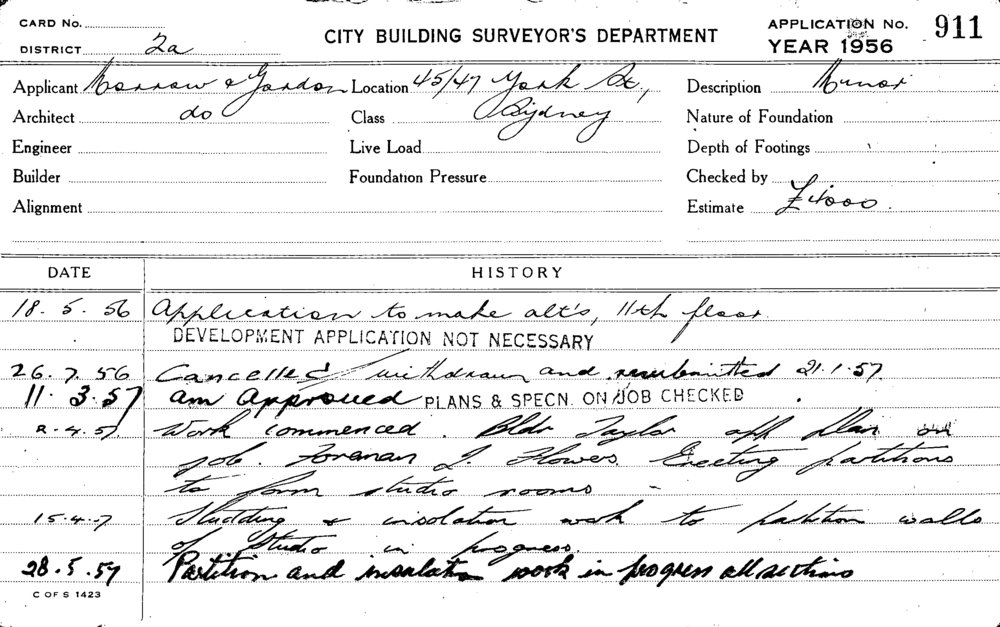 CARD No.
DISTRICT 2a
CITY BUILDING SURVEYOR'S DEPARTMENT
APPLICATION No. 911
YEAR 1956
Applicant Morrow & Gordon Location 45/47 York St., Description Minor
Architect do Class Sydney Nature of Foundation
Engineer Live Load Depth of Footings
Builder Foundation Pressure Checked by
Alignment Estimate £4000.
DATE HISTORY
18. 5. 56 Application to make alt's, 11th floor
DEVELOPMENT APPLICATION NOT NECESSARY
26. 7. 56 Cancelled / withdrawn and resubmitted 21.1.57.
11. 3. 57 am Approved PLANS & SPECN. ON JOB CHECKED
2.4.57 Work commenced. Bldr Taylor app plan on
job. Foreman J. Flowers. Erecting partitions
to form studio rooms
15.4.7 Studding & insolation work to partition walls
of studio in progress.
28.5.57 Partition and insulation work in progress all sections
C OF S 1423